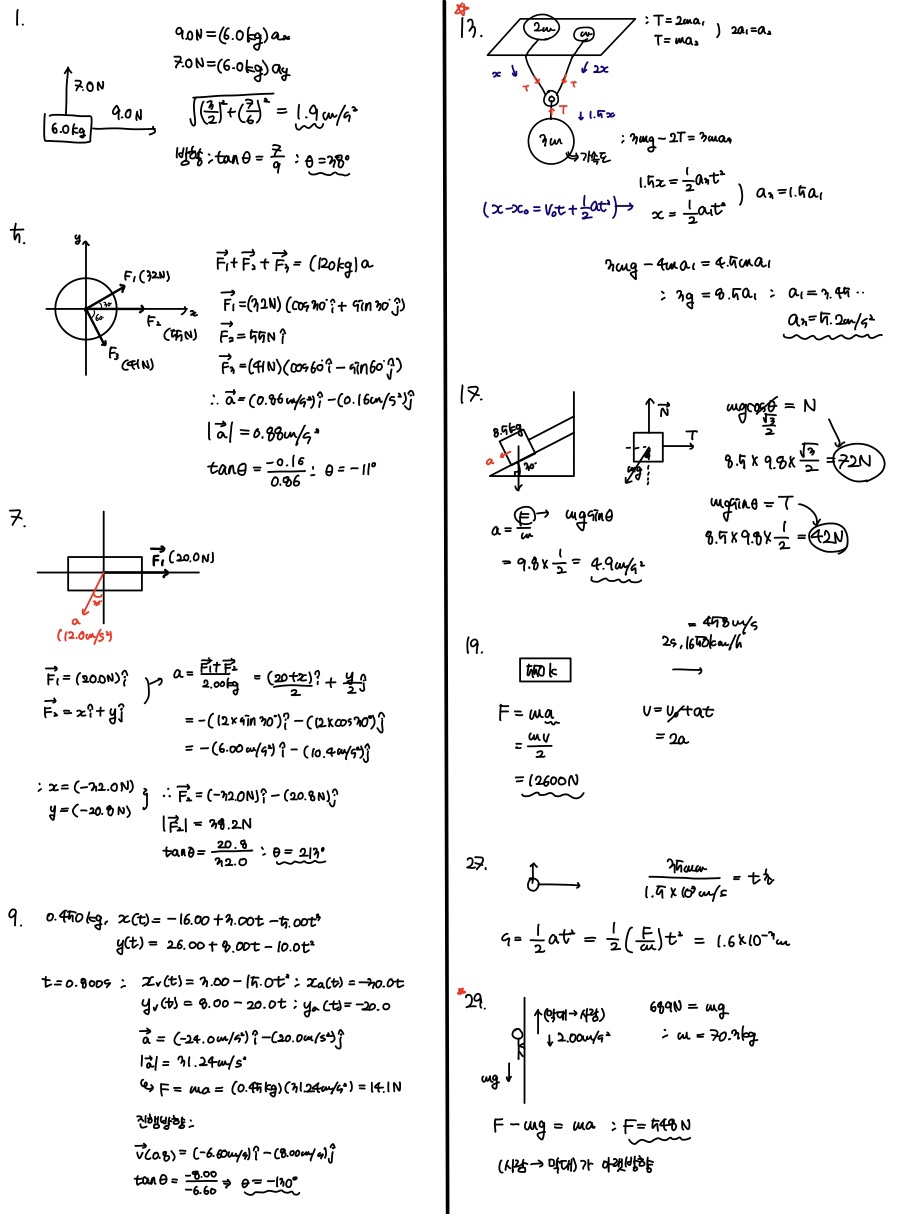 1.
9.0N=(6.0kg)aₓ
7.0N=(6.0kg)a_y
7.0N
9.0N
6.0kg
√((3/2)²+(7/6)²) = 1.9m/s²
방향 : tanθ = 7/9 : θ=38°
5.
y
x
F₁(32N)
30
60
F₂
(55N)
F₃
(41N)
F₁+F₂+F₃=(120kg)a
F₁=(32N)(cos30°î+sin30°ĵ)
F₂=55Nî
F₃=(41N)(cos60°î-sin60°ĵ)
∴ a=(0.86m/s²)î-(0.16m/s²)ĵ
|a|=0.88m/s²
tanθ = -0.16/0.86 : θ=-11°
7.
F₁(20.0N)
30°
a
(12.0m/s²)
F₁=(20.0N)î
F₂=xî+yĵ
a = (F₁+F₂)/2.00kg = (20+x)/2 î + y/2 ĵ
=-(12×sin30°)î-(12×cos30°)ĵ
=-(6.00m/s²)î-(10.4m/s²)ĵ
: x=(-32.0N)
y=(-20.8N)
∴ F₂=(-32.0N)î-(20.8N)ĵ
|F₂|=38.2N
tanθ = 20.8/32.0 : θ=213°
9. 0.450kg, x(t)=-16.00+3.00t-5.00t³
y(t)=26.00+8.00t-10.0t²
t=0.800s : x_v(t)=3.00-15.0t² : x_a(t)=-30.0t
y_v(t)=8.00-20.0t ; y_a(t)=-20.0
a=(-24.0m/s²)î-(20.0m/s²)ĵ
|a|=31.24m/s²
↳ F=ma=(0.45kg)(31.24m/s²)=14.1N
진행방향 :
v(0.8)=(-6.60m/s)î-(8.00m/s)ĵ
tanθ = -8.00/-6.60 ⇒ θ=-130°
☆
13.
2m
m
: T=2ma₁
T=ma₂
) 2a₁=a₂
x ↓
T
T
↓ 2x
T
↓ 1.5x
3m
→가속도
: 3mg-2T=3ma₃
(x-x₀=v₀t+½at²)→
1.5x=½a₃t²
x=½a₁t²
) a₃=1.5a₁
3mg-4ma₁=4.5ma₁
: 3g=8.5a₁ : a₁=3.45··
a₃=5.2m/s²
17.
8.5kg
a
30°
N
T
mg
mgcosθ = N
√3/2
8.5×9.8×√3/2 = 72N
a = F/m → mgsinθ
= 9.8×½ = 4.9m/s²
mgsinθ = T
8.5×9.8×½ = 42N
19.
= 458m/s
2s, 1650km/h
550k
F = ma
= mv/2
= 12600N
v = v₀+at
= 2a
27.
35mm/1.5×10⁸m/s = t초
s = ½at² = ½(F/m)t² = 1.6×10⁻³m
*29.
↑(막대→사람)
↓2.00m/s²
mg↓
689N = mg
: m=70.3kg
F-mg = ma : F=548N
(사람→막대)가 아랫방향